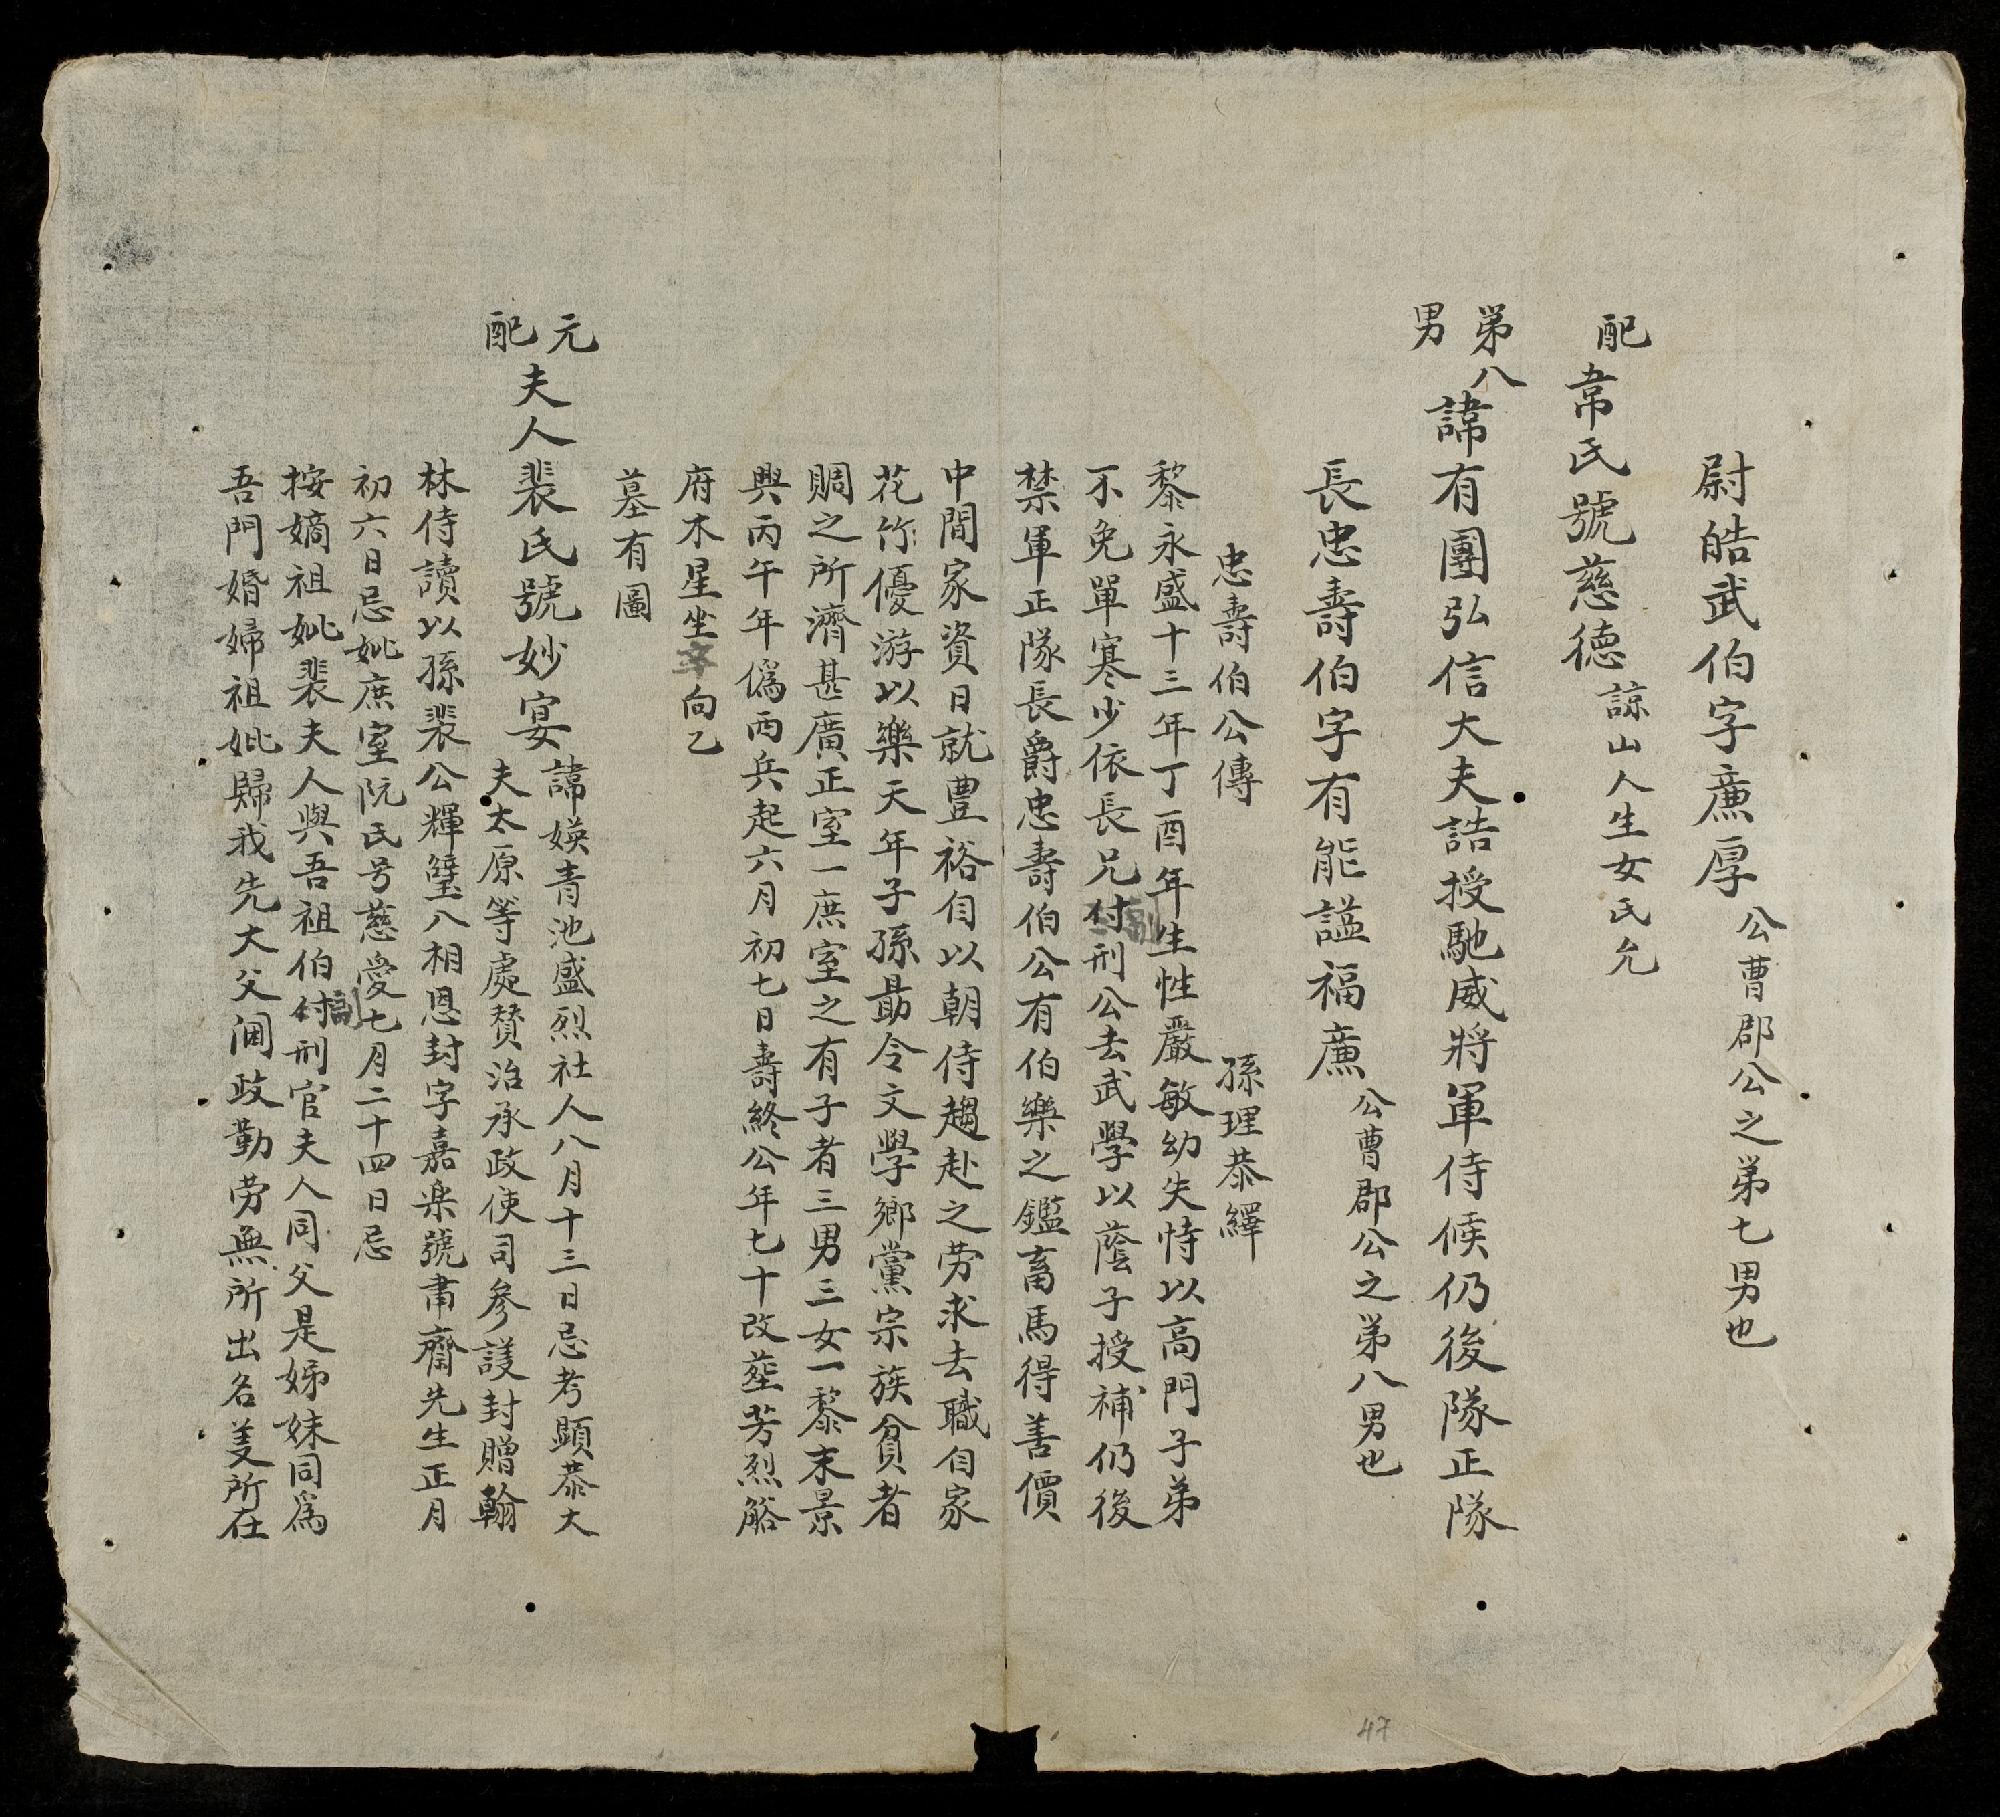 尉皓武伯字㢘厚公曹郡公之弟七男也
配韋氏號慈德諒山人生女氏允
弟八男諱有團弘信大夫誥授馳威將軍侍候仍後隊正隊
長忠壽伯字有能謚福㢘公曹郡公之弟八男也
忠壽伯公傳 孫理恭繹
黎永盛十三年丁酉年生性嚴敏幼失恃以高門子弟
不免單寒少依長兄副刑公去武學以蔭子授補仍後
禁軍正隊長爵忠壽伯公有伯樂之鑑畜馬得善價
中間家資日就豊裕自以朝侍趨赴之劳求去職自家
花竹優游以樂天年子孫勗令文學鄉黨宗族貧者
賙之所濟甚廣正室一庶室之有子者三男三女一黎末景
興丙午年偽西兵起六月初七日壽終公年七十改塟芳烈䑓
府木星坐辛向乙
墓有圖
元配夫人裴氏號妙宴諱媖青池盛烈社人八月十三日忌考顕恭大
夫太原等處賛治承政使司參議封贈翰
林侍讀以孫裴公輝璧八相恩封字嘉楽號肅齋先生正月
初六日忌妣庶室阮氏号慈愛七月二十四日忌
按嫡祖妣裴夫人與吾祖伯副刑官夫人同父是姊妹同為
吾門婚婦祖妣歸我先大父閫政勤劳無所出名姜所在